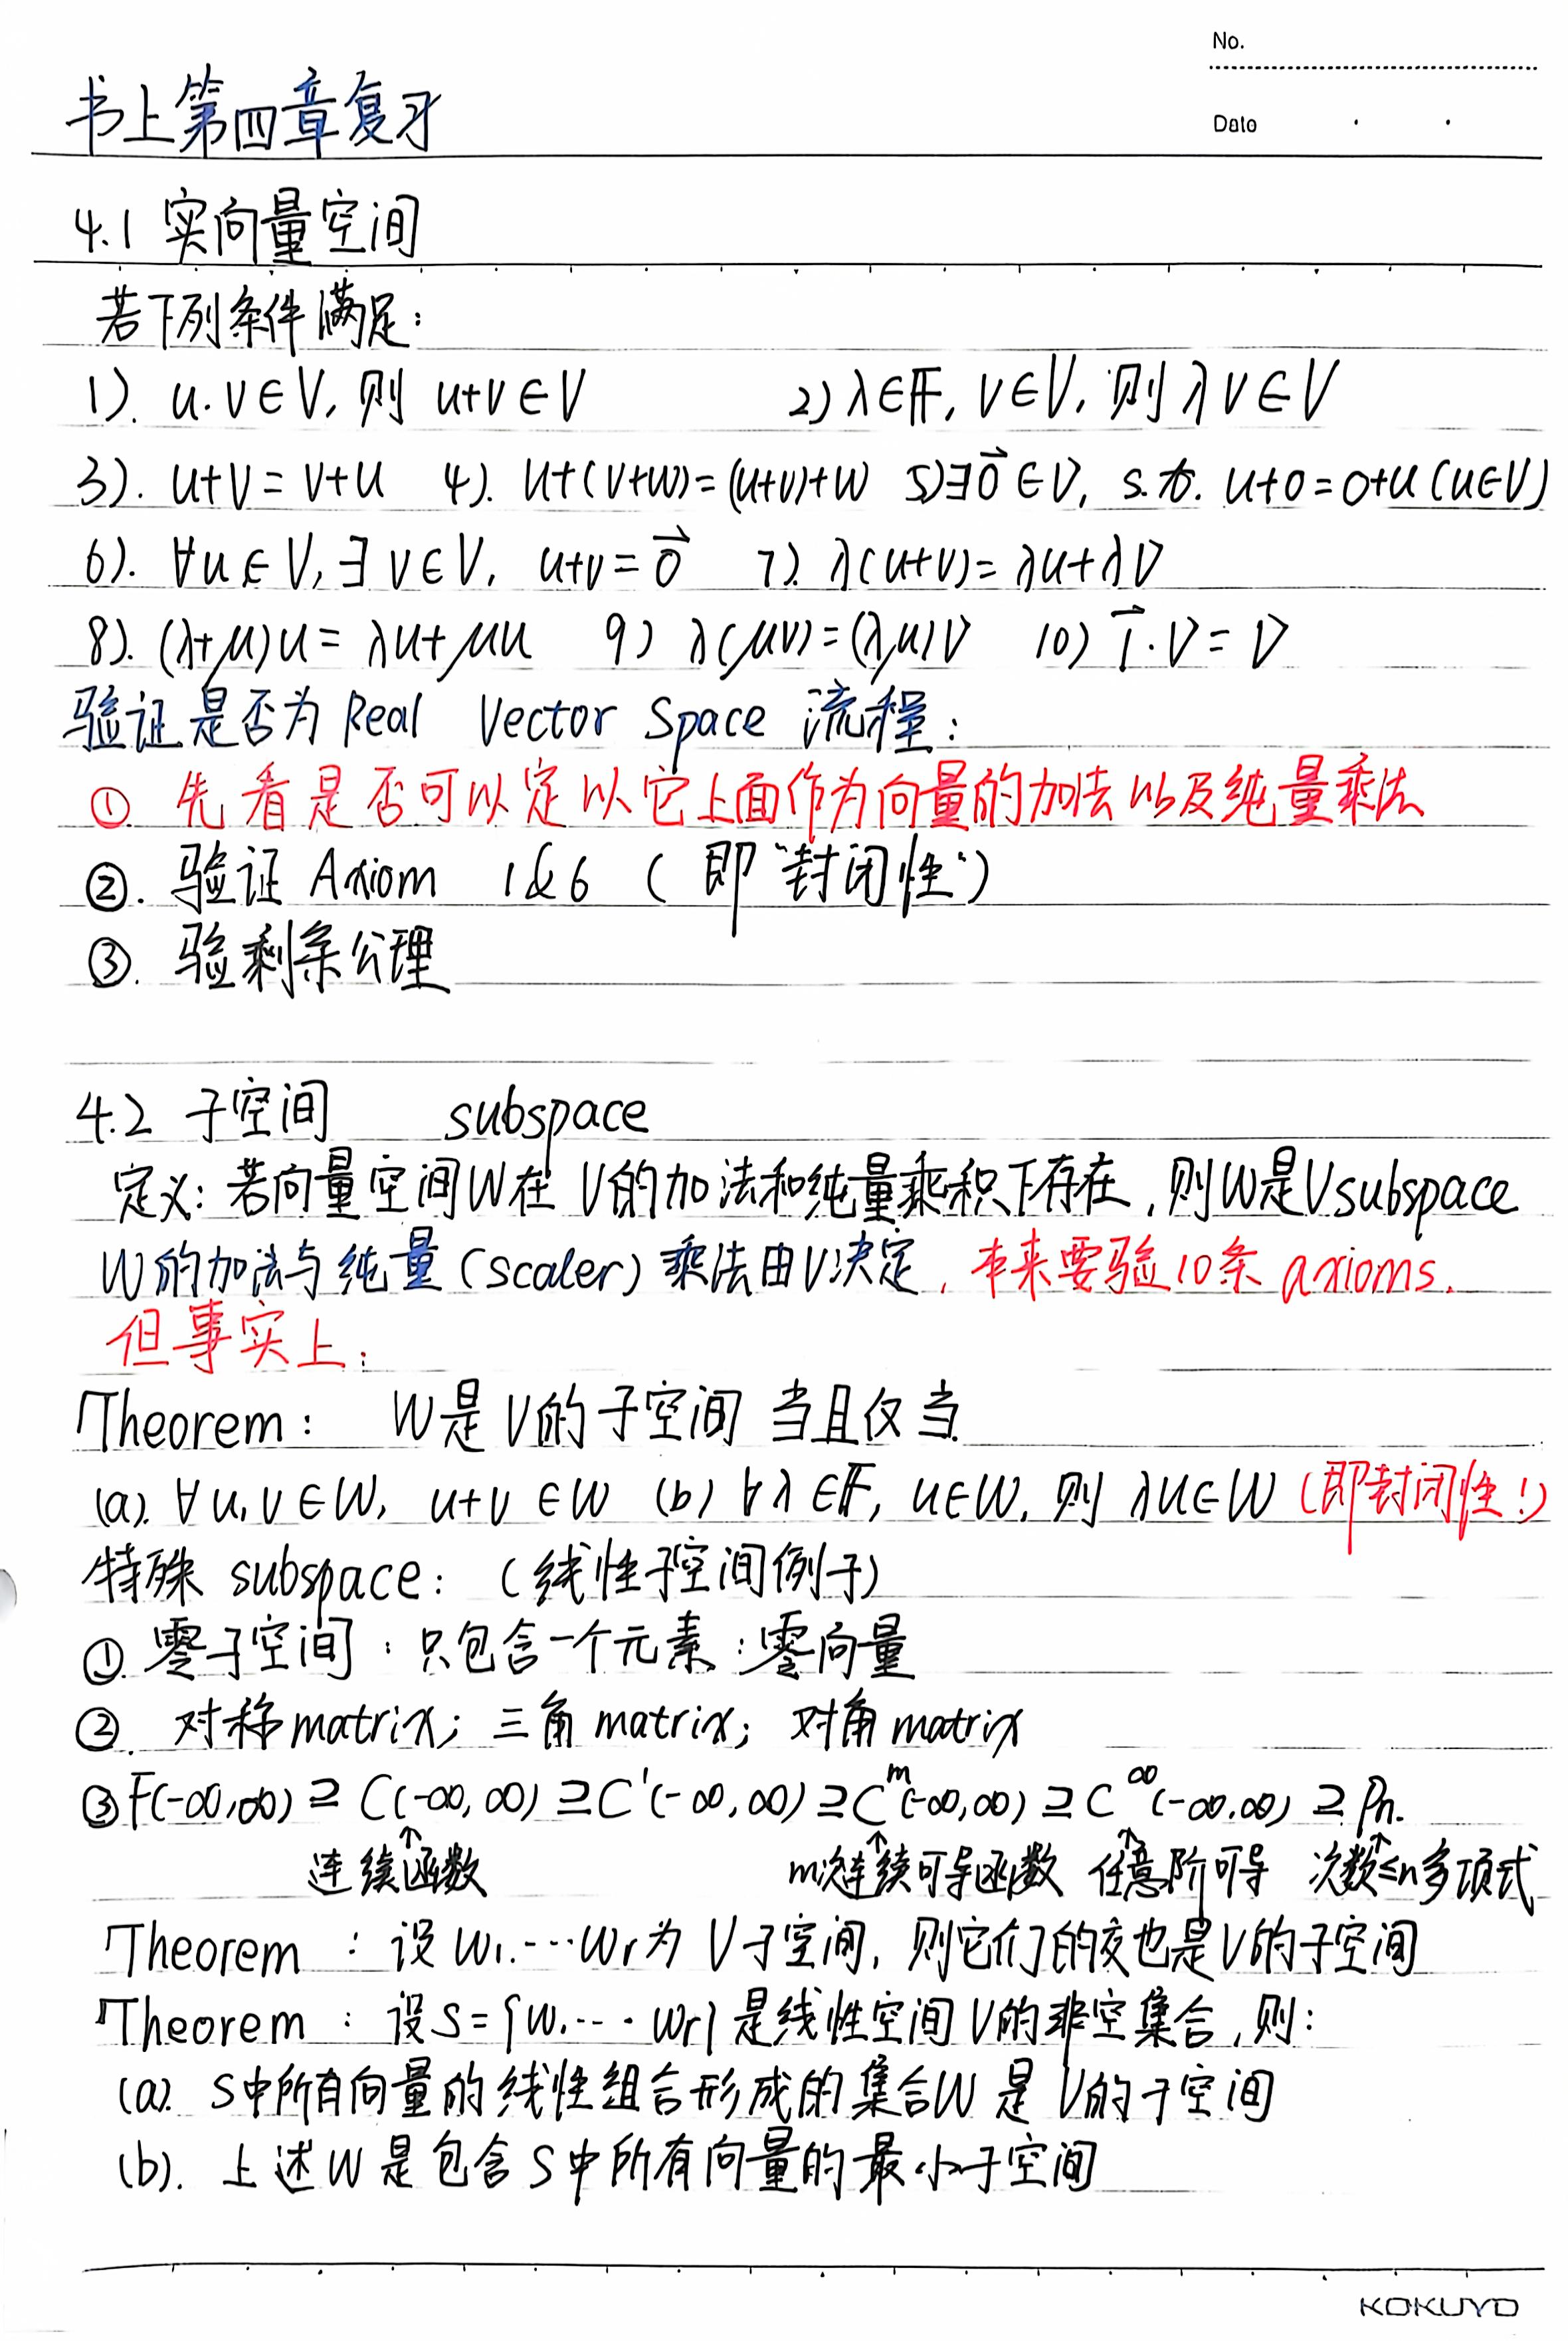 No.
Date
书上第四章复习
4.1 实向量空间
若下列条件满足：
1). u.v∈V, 则 u+v∈V 2) λ∈𝔽, v∈V, 则 λv∈V
3). u+v=v+u 4). u+(v+w)=(u+v)+w 5)∃0⃗∈V, s.t. u+0=0+u (u∈V)
6). ∀u∈V, ∃v∈V, u+v=0⃗ 7). λ(u+v)=λu+λv
8). (λ+μ)u=λu+μu 9) λ(μv)=(λμ)v 10) 1⃗·v=v
验证是否为 Real Vector Space 流程：
① 先看是否可以定以它上面作为向量的加法以及纯量乘法
②. 验证 Axiom 1&6 (即"封闭性")
③. 验剩余公理
4.2 子空间 subspace
定义：若向量空间W在 V的加法和纯量乘积下存在,则W是Vsubspace
W的加法与纯量(scaler)乘法由V决定, 本来要验10条 axioms.
但事实上：
Theorem: W是V的子空间 当且仅当
(a). ∀u,v∈W, u+v∈W (b) ∀λ∈𝔽, u∈W, 则 λu∈W (即封闭性!)
特殊 subspace: (线性子空间例子)
① 零子空间：只包含一个元素：零向量
②. 对称matrix; 三角matrix; 对角matrix
③F(-∞,∞)⊇C(-∞,∞)⊇C¹(-∞,∞)⊇Cᵐ(-∞,∞)⊇C^∞(-∞,∞)⊇Pn.
↑ ↑ ↑ ↑
连续函数 m次连续可导函数 任意阶可导 次数≤n多项式
Theorem : 设 W1.…Wr为 V子空间, 则它们的交也是V的子空间
Theorem : 设S={W1.…Wr}是线性空间V的非空集合,则:
(a). S中所有向量的线性组合形成的集合W是 V的子空间
(b). 上述W是包含S中所有向量的最小子空间
KOKUYO